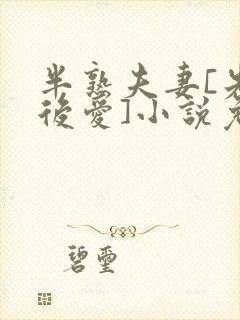 半熟夫妻[先
後愛]小説免
碧璽